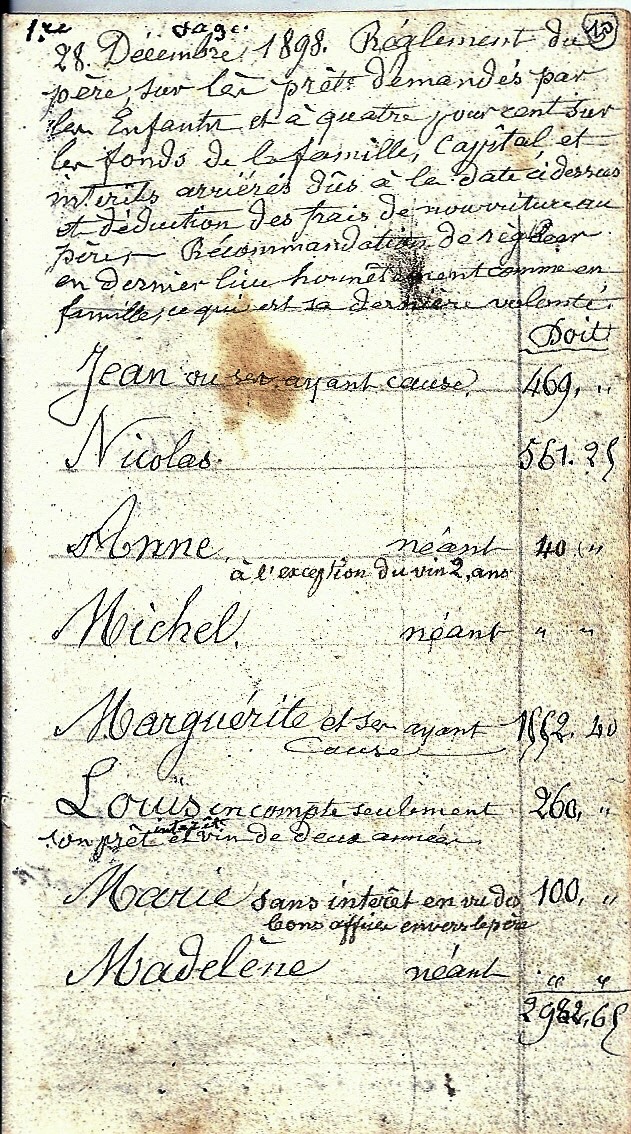 1.re page. 10
28. Décembre, 1898. Réglement du
père, sur les prêts demandés par
les Enfants et à quatre pour cent sur
les fonds de la famille, Capital et
intérêts arriérés dûs à la date ci dessus
et déduction des frais de nourriture au
père. Recommandation de règler
en dernier lieu honnêtement comme en
famille, ce qui est sa dernière volonté.
Doit
Jean ou ses ayant cause. 469. "
Nicolas. 561.25
Anne. néant 40 "
à l'exception du vin 2, ans
Michel. néant " "
Marguérite et ses ayant 1552.40
Cause
Louis en compte seulement 260, "
son prêt intérêt et vin de deux années
Marie sans intérêt en vu des 100, "
bons offices envers le père
Madelène néant " "
2982,65